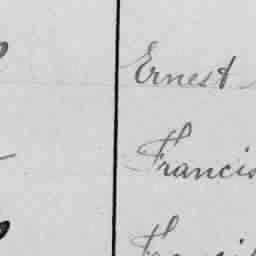 Ernest
Francis